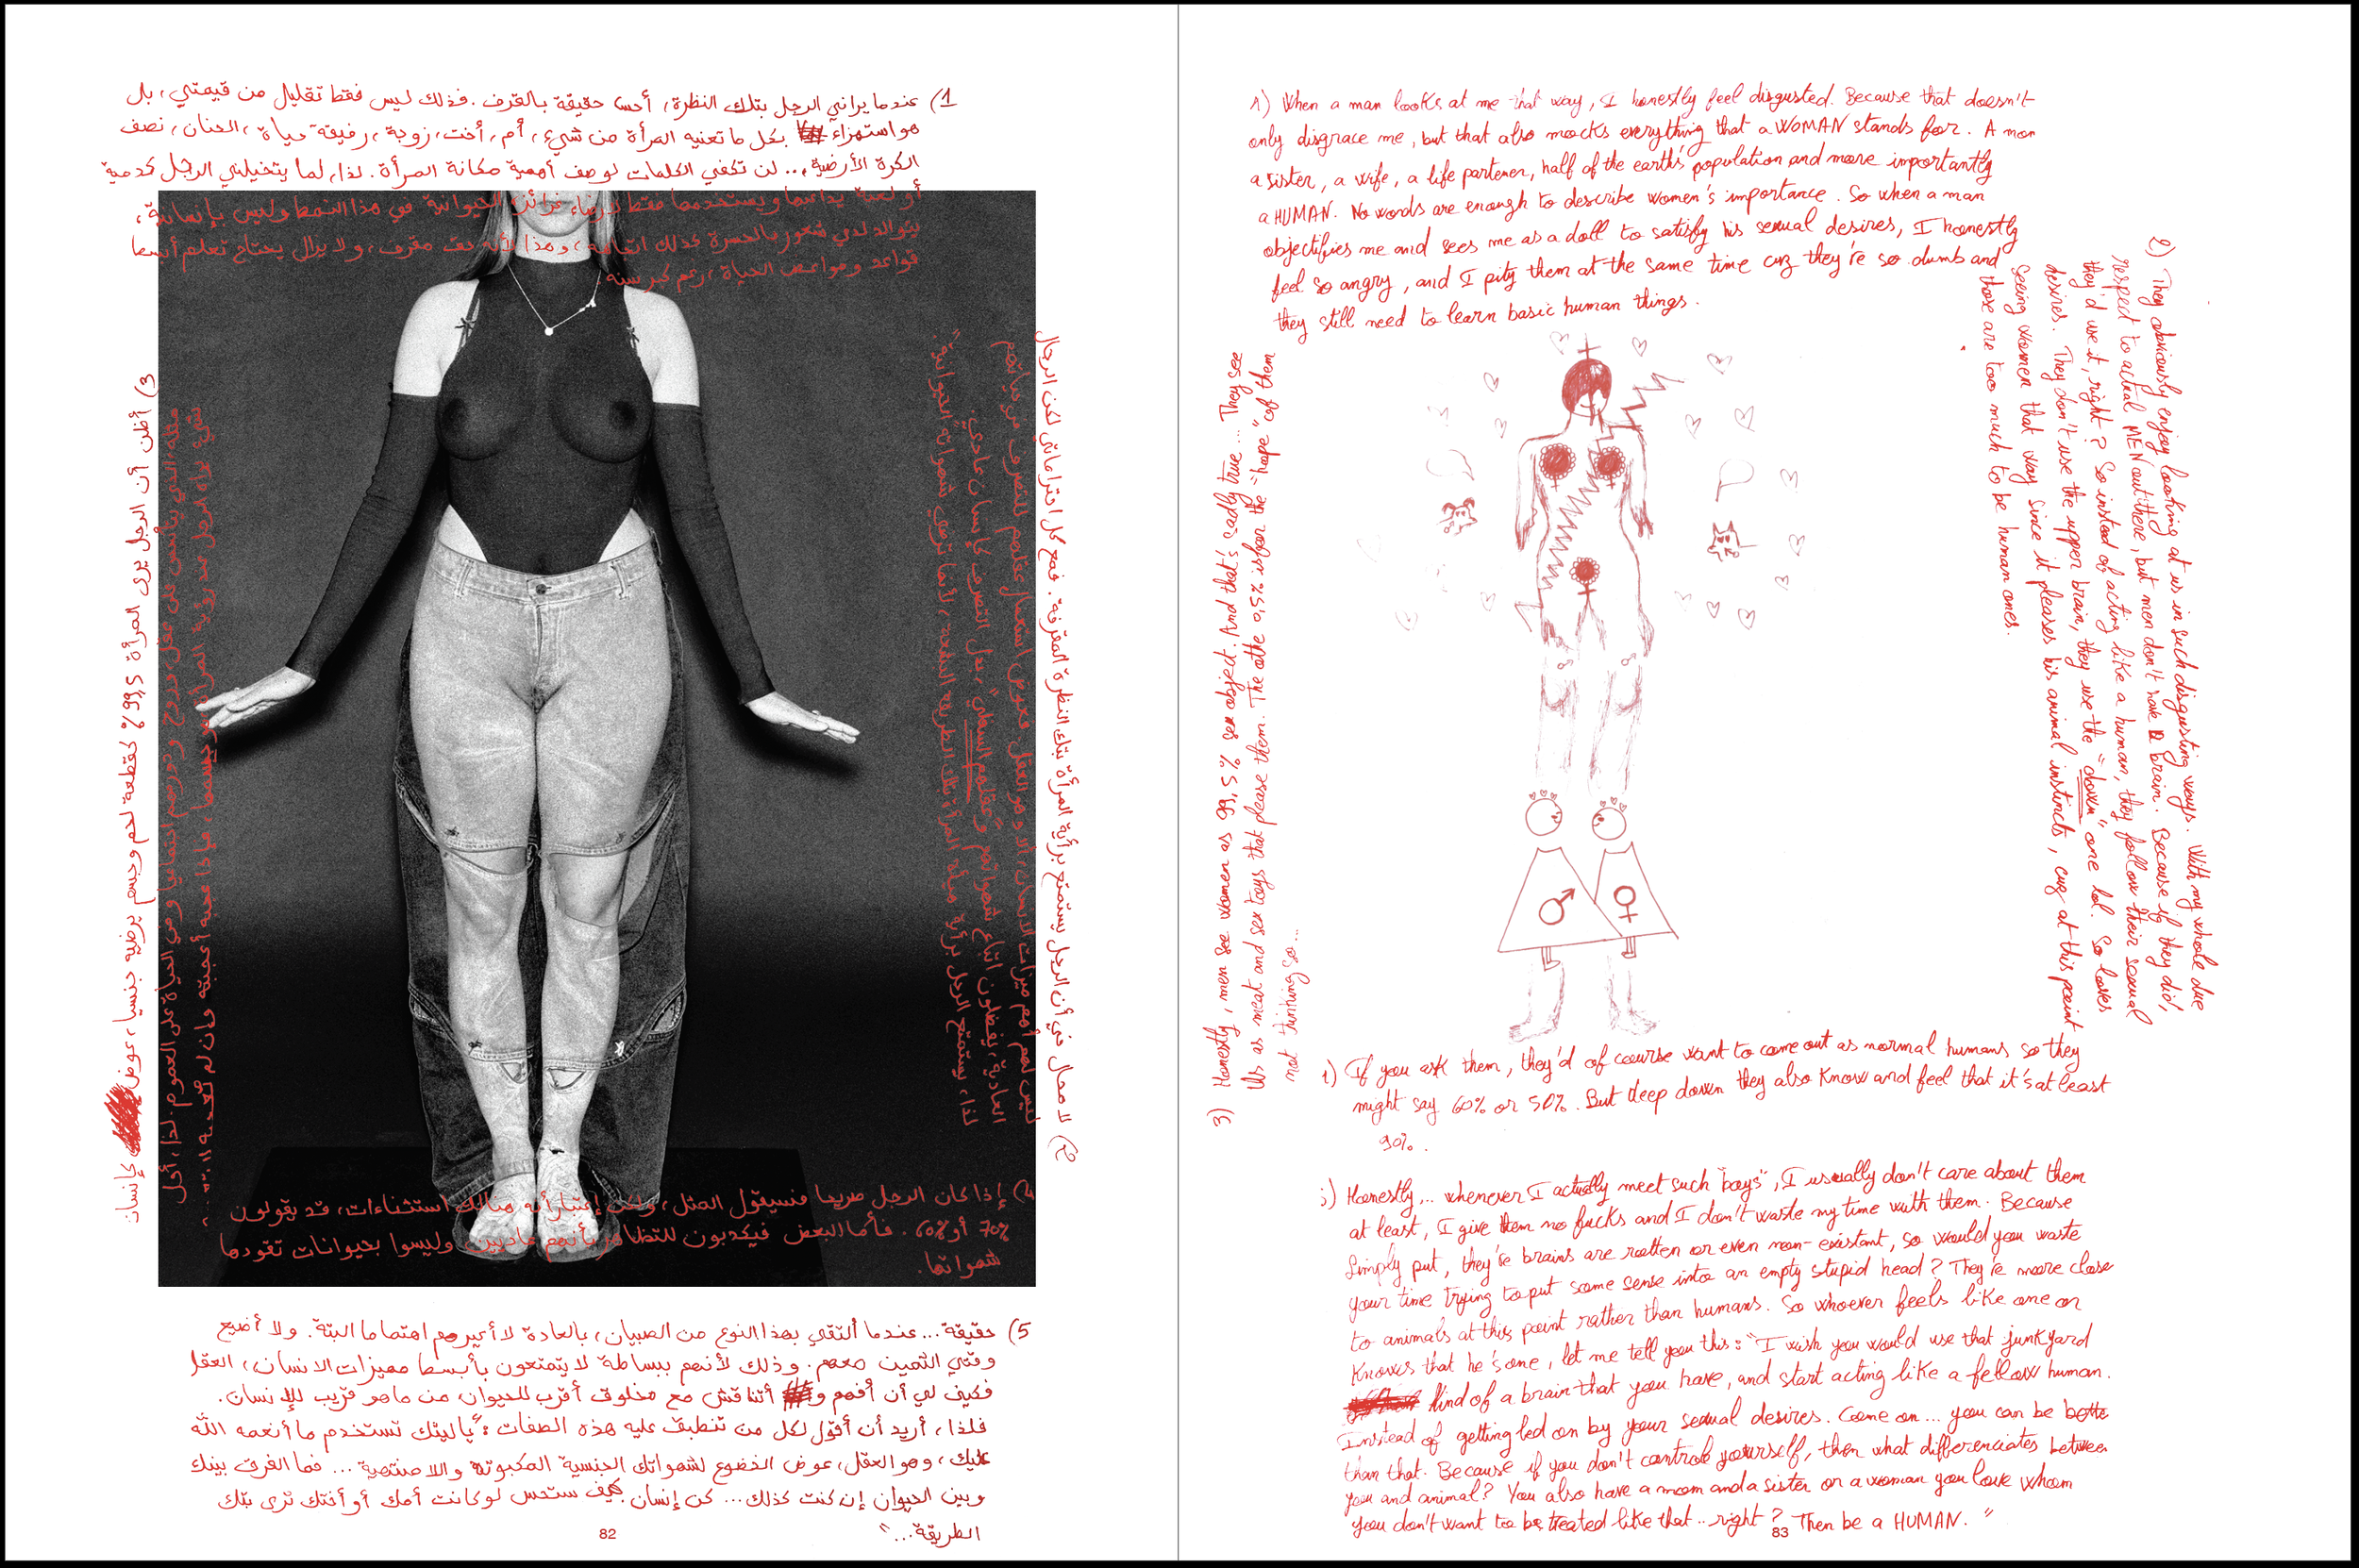 1) عندما يراني الرجل بتلك النظرة، أحس حقيقة بالقرف. فذلك ليس فقط تقليل من قيمتي، بل
هو استهزاء بكل ما تعنيه المرأة من شيء، أم، أخت، زوجة، رفيقة حياة، الحنان، نصف
الكرة الأرضية... لن تكفي الكلمات لوصف أهمية مكانة المرأة. لذا، لما يتخيلني الرجل كدمية
أو لعبة يداعبها ويستخدمها فقط لإرضاء غرائزه الحيوانية في هذا النمط وليس بإنسانية،
يتوالد لدي شعور مالحسرة كذلك اتجاهه، وهذا لأنه حقا مقرف، ولا يزال يحتاج تعلم أبسط
قواعد ومواعض الحياة، رغم كبر سنه.
2) لا محال في أن الرجل يستمتع برأية المرأة بتلك النظرة المقرفة. فمع كل احتراماتي لكن الرجال
ليس لهم أهم ميزات الانسان، ألا وهو العقل فعوض استعمال عقلهم للتصرف من حياتهم
العادية، يفضلون اتباع شهواتهم و"عقلهم السفلي"، بدل التصرف كإنسان عادي.
لذا، يستمتع الرجل برأية هيأة المرأة بتلك الطريقة البشعة، لأنها ترضي شهواته الحيوانية."
3) أظن أن الرجل يرى المرأة 99,5% كقطعة لحم وجسم يرضيه جنسيا، عوض كإنسان
مثله الذي يتأسس على عقل وروح ودورهم اجتماعيا وفي الحياة على العموم. لذا، أول
شيء يراه الرجل عند رؤية المرأة هو جسمها، فإذا عجبه أعجبته وإن لم
4) إذا كان الرجل صريحا فسيقول المثل، ولكن إعتبارا أنه هنالك استثناءات، قد يقولون
70% أو 60%. فأما البعض فيكذبون للتظاهر بأنهم عاديين وليسوا بحيوانات تقودها
شهواتها.
5) حقيقة... عندما ألتقي بهذا النوع من الصبيان، بالعادة لا أعيرهم اهتماما البتة. ولا أضيع
وقتي الثمين معهم. وذلك لأنهم ببساطة لا يتمتعون بأبسط مميزات الانسان، العقل
فكيف لي أن أفهم و أتناقش مع مخلوق أقرب للحيوان من ماهو قريب للإنسان.
فلذا، أريد أن أقول لكل من تنطبق عليه هذه الصفات: "ياليتك تستخدم ما أنعمه الله
عليك، وهو العقل، عوض الخضوع لشهواتك الجنسية المكبوتة واللامنتهية... فما الفرق بينك
وبين الحيوان إن كنت كذلك... كن إنسان كيف ستحس لو كانت أمك أو أختك ترى بتلك
الطريقة..."
82
1) When a man looks at me that way, I honestly feel disgusted. Because that doesn't
only disgrace me, but that also mocks everything that a WOMAN stands for. A mom
a sister, a wife, a life partener, half of the earth's population and more importantly
a HUMAN. No words are enough to describe women's importance. So when a man
objectifies me and sees me as a doll to satisfy his sexual desires, I honestly
feel so angry, and I pity them at the same time cuz they're so dumb and
they still need to learn basic human things.
2) They obviously enjoy looking at us in such disgusting ways. With my whole due
respect to actual MEN out there, but men don't have a brain. Because if they did,
they'd use it, right? So instead of acting like a human, they follow their sexual
desires. They don't use the upper brain, they use the "down" one lol. So loves
seeing women that way since it pleases his animal instincts, cuz at this point
those are too much to be human ones.
3) Honestly, men see women as 99,5% sex object. And that's sadly true... They see
Us as meat and sex toys that please them. The othe 0,5% is for the "hope" of them
not thinking so...
♂ ♀
4) If you ask them, they'd of course want to come out as normal humans so they
might say 60% or 50%. But deep down they also know and feel that it's at least
90%.
5) Honestly... whenever I actually meet such "boys", I usually don't care about them
at least, I give them no fucks and I don't waste my time with them. Because
Simply put, they're brains are rotten or even non-existant, so would you waste
your time trying to put some sense into an empty stupid head? They're more close
to animals at this point rather than humans. So whoever feels like one or
knows that he's one, let me tell you this: "I wish you would use that junkyard
kind of a brain that you have, and start acting like a fellow human.
Instead of getting led on by your sexual desires. Come on... you can be bette
than that. Because if you don't control yourself, then what differenciates between
you and animal? You also have a mom and a sister or a woman you love whom
you don't want to be treated like that.. right? Then be a HUMAN."
83